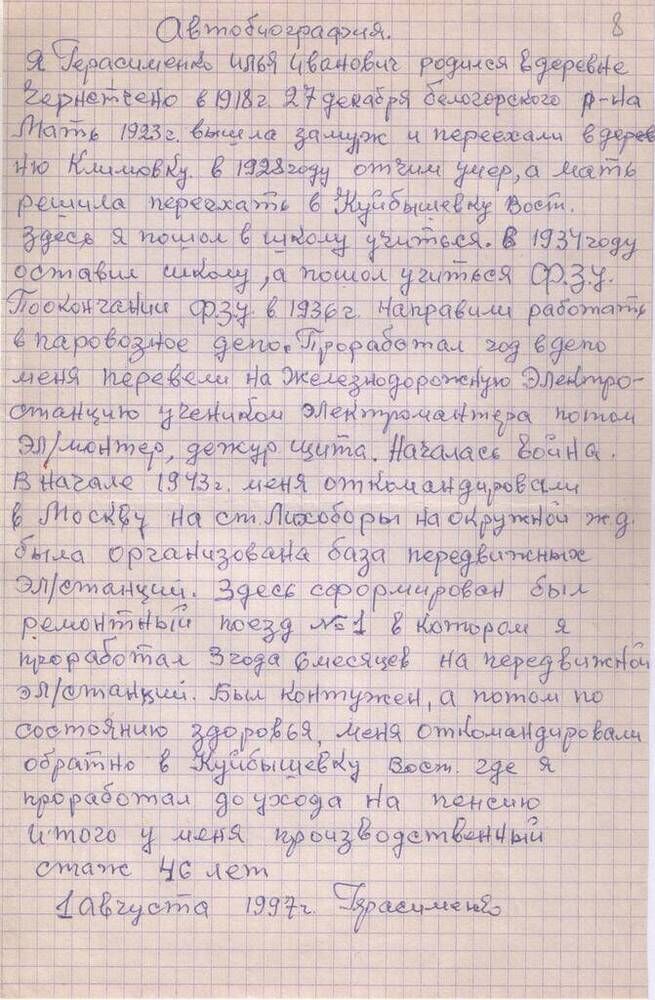 8
Автобиография.
Я Герасименко Илья Иванович родился в деревне
в 1918 г. 27 декабря белогорского р-на
Мать 1923 г. вышла замуж и переехали в дерев
ню Климовку. в 1928 году отчим умер, а мать
решила переехать в Куйбышевку Вост.
Здесь я пошол в школу учиться. В 1934 году
оставил школу, а пошол учиться Ф.З.У.
Поокончании ФЗУ. в 1936 г. Направили работать
в паровозное депо. Проработал год в депо
меня перевели на Железнодорожную Электро-
станцию учеником электромантера потом
эл/монтер, дежур щита. Началась война.
В начале 1943 г. меня откомандировали
в Москву на ст. Лихоборы на окружной ж.д.
была организована база передвижных
эл/станций. Здесь сформирован был
ремонтный поезд №1 в котором я
проработал 3 года 6 месяцев на передвижной
эл/станций. Был контужен, а потом по
состоянию здоровья, меня откомандировали
обратно в Куйбышевку Вост. где я
проработал до ухода на пенсию
Итого у меня производственный
стаж 46 лет
1 Августа 1997 г. Герасименко